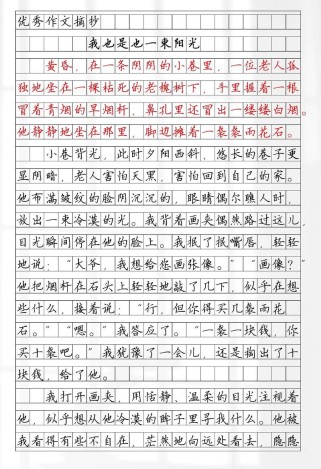 优秀作文摘抄
我也是也一束阳光
黄昏，在一条阴阴的小巷里，一位老人孤
独地坐在一棵枯死的老槐树下，手里握着一根
冒着青烟的旱烟杆，鼻孔里还冒出一缕缕白烟。
他静静地坐在那里，脚边摊着一袋袋雨花石。
小巷背光，此时夕阳西斜，悠长的巷子更
显阴暗，老人害怕天黑，害怕回到自己的家。
他布满皱纹的脸阴沉沉的，眼睛偶尔瞧人时，
放出一束冷漠的光。我背着画夹偶然路过这儿，
目光瞬间停在他的脸上。我抿了抿嘴唇，轻轻
地说：“大爷，我想给您画张像。”“画像？”
他把烟杆在石头上轻轻地敲了几下，似乎在想
些什么，接着说：“行，但你得买几袋雨花
石。”“嗯。”我答应了。“一袋一块钱，你
买十袋吧。”我犹豫了一会儿，还是掏出了十
块钱，给了他。
我打开画夹，用恬静、温柔的目光注视着
他，似乎想从他冷漠的眸子里寻我什么。他被
我看得有些不自在，茫然地向远处看去，隐隐